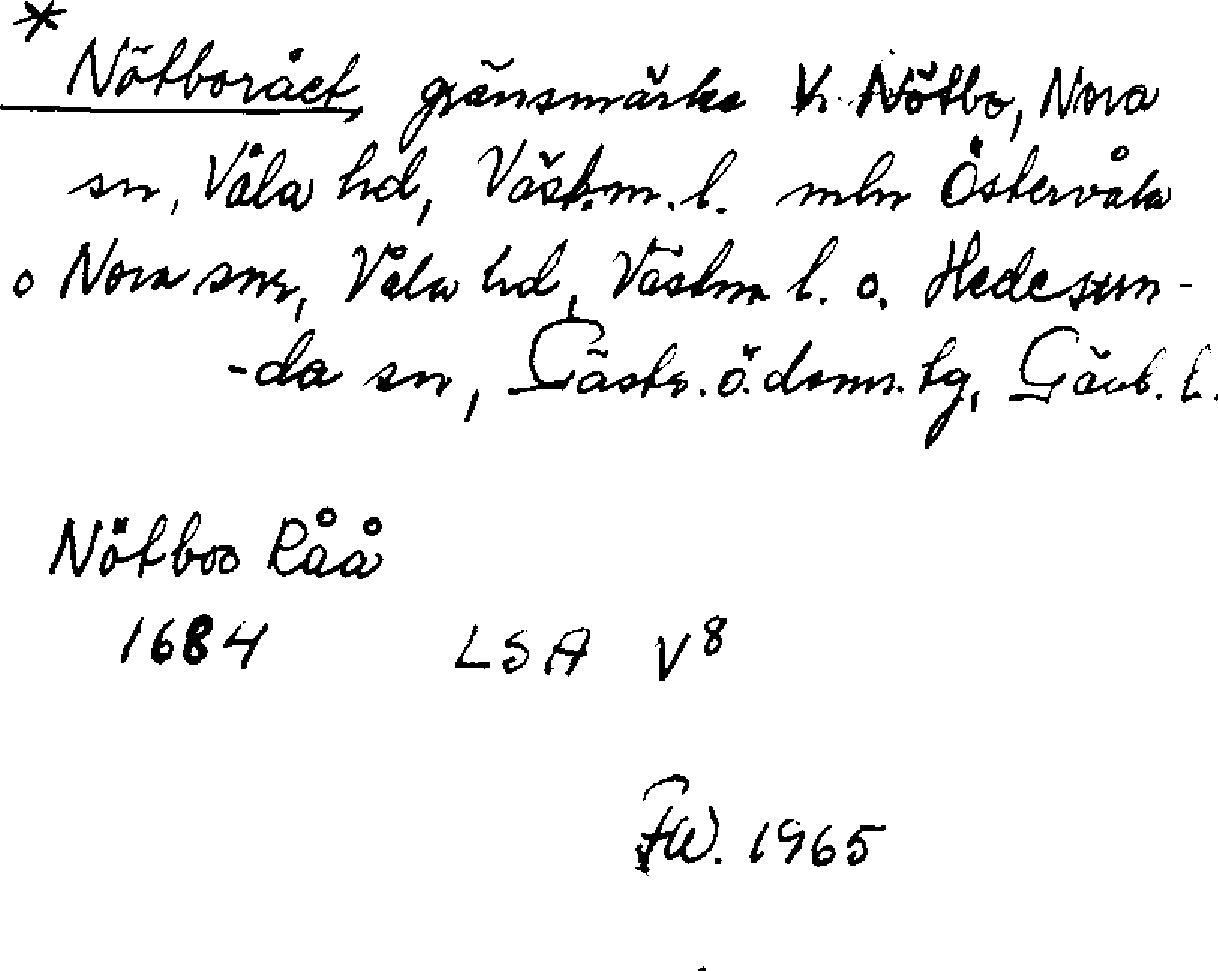 * Nötboråct, gränsmärke v. Nötbo, Nora
sn, Våla hd, Västm. l. mln Östervåla
o Nora snr, Våla hd, Västm l. o. Hedesun-
-da sn, Gästr. ö. doms. tg, Gävl. l.
Nötboo Råå
1684 LSA V8
FW. 1965